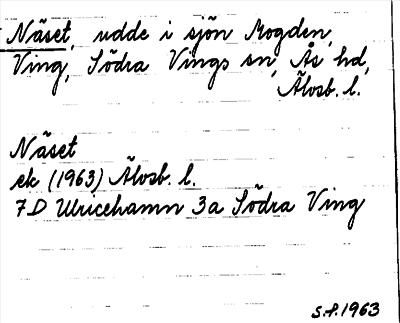 Näset, udde i sjön Mogden,
Ving, Södra Vings sn, Ås hd,
Älvsb. l.
Näset
ek (1963) Älvsb. l.
7D Ulricehamn 3a Södra Ving
S.P. 1963